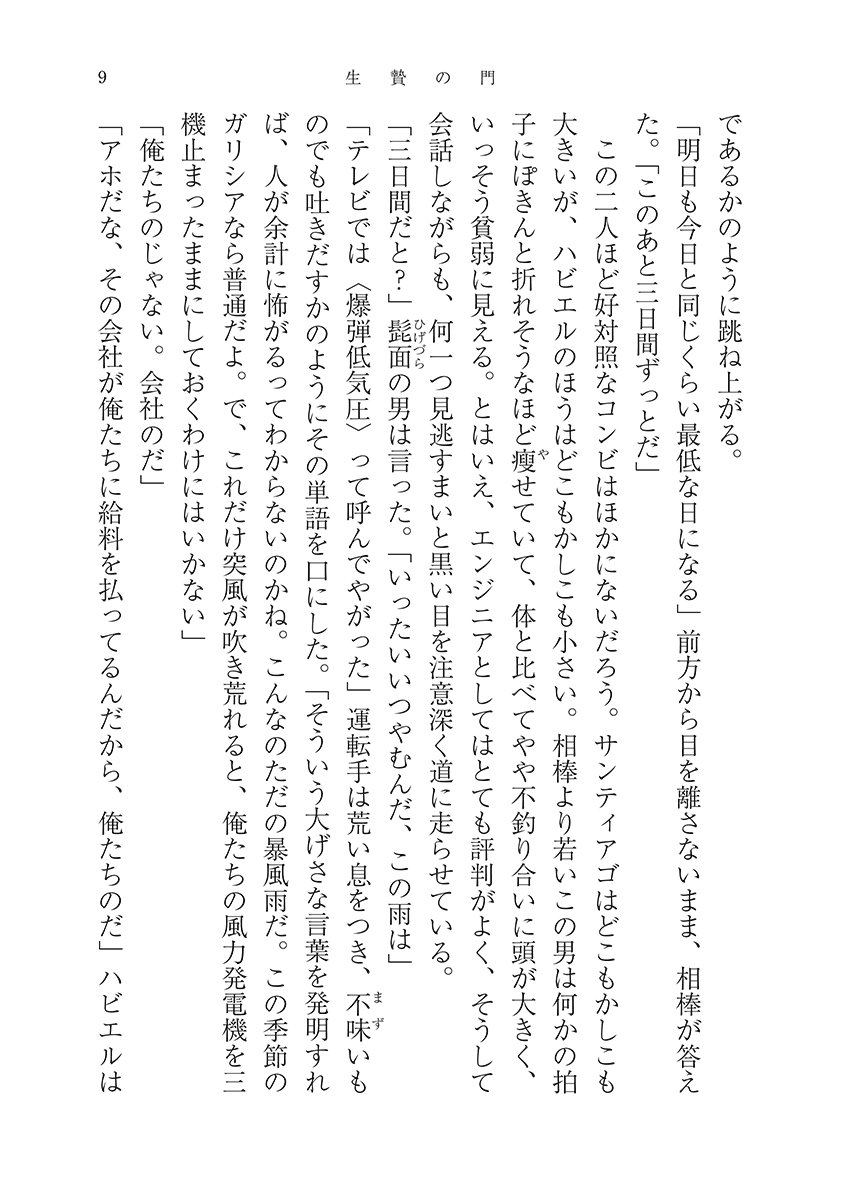 9
生贄の門
であるかのように跳ね上がる。
「明日も今日と同じくらい最低な日になる」前方から目を離さないまま、相棒が答え
た。「このあと三日間ずっとだ」
この二人ほど好対照なコンビはほかにないだろう。サンティアゴはどこもかしこも
大きいが、ハビエルのほうはどこもかしこも小さい。相棒より若いこの男は何かの拍
子にぽきんと折れそうなほど痩やせていて、体と比べてやや不釣り合いに頭が大きく、
いっそう貧弱に見える。とはいえ、エンジニアとしてはとても評判がよく、そうして
会話しながらも、何一つ見逃すまいと黒い目を注意深く道に走らせている。
「三日間だと?」髭面ひげづらの男は言った。「いったいいつやむんだ、この雨は」
「テレビでは〈爆弾低気圧〉って呼んでやがった」運転手は荒い息をつき、不味まずいも
のでも吐きだすかのようにその単語を口にした。「そういう大げさな言葉を発明すれ
ば、人が余計に怖がるってわからないのかね。こんなのただの暴風雨だ。この季節の
ガリシアなら普通だよ。で、これだけ突風が吹き荒れると、俺たちの風力発電機を三
機止まったままにしておくわけにはいかない」
「俺たちのじゃない。会社のだ」
「アホだな、その会社が俺たちに給料を払ってるんだから、俺たちのだ」ハビエルは